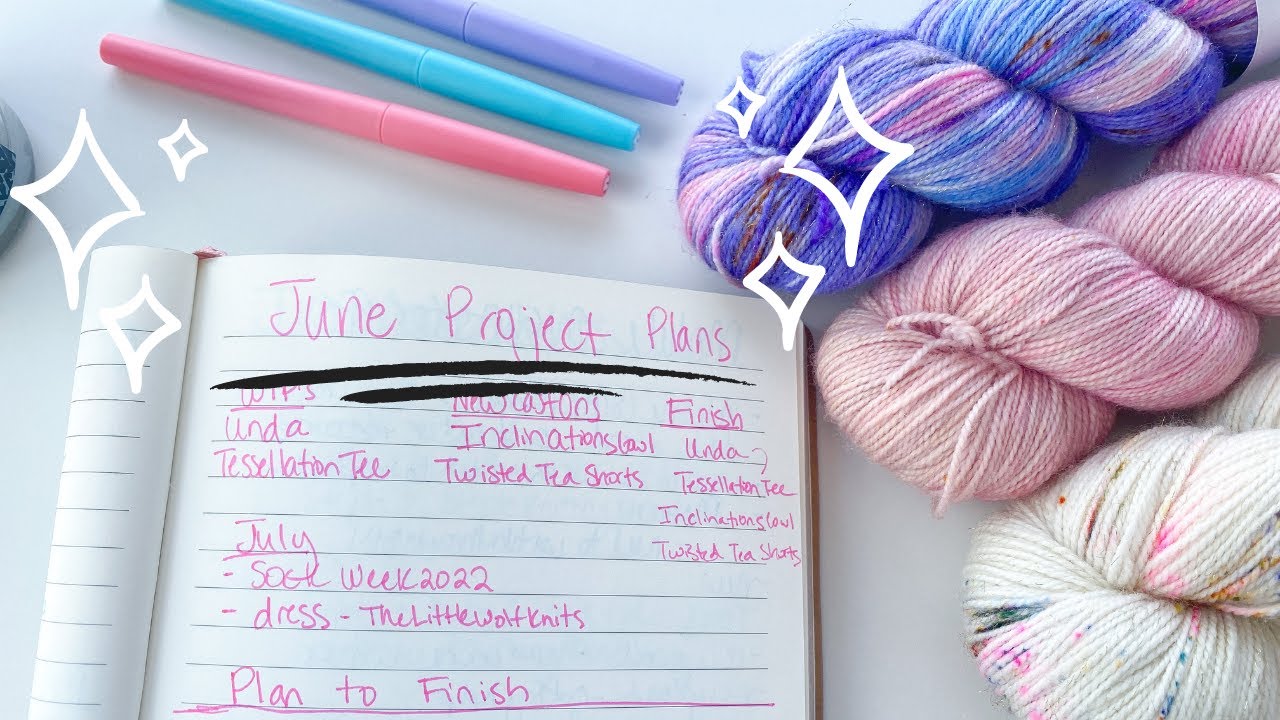 June Project Plans
WIP's New Cast Ons Finish
Unda Inclinations Cowl Unda ?
Tessellation Tee Twisted Tea Shorts Tessellation Tee
Inclinations Cowl
Twisted Tea Shorts
July
- Sock Week 2022
- dress - TheLittleWolfKnits
Plan to Finish